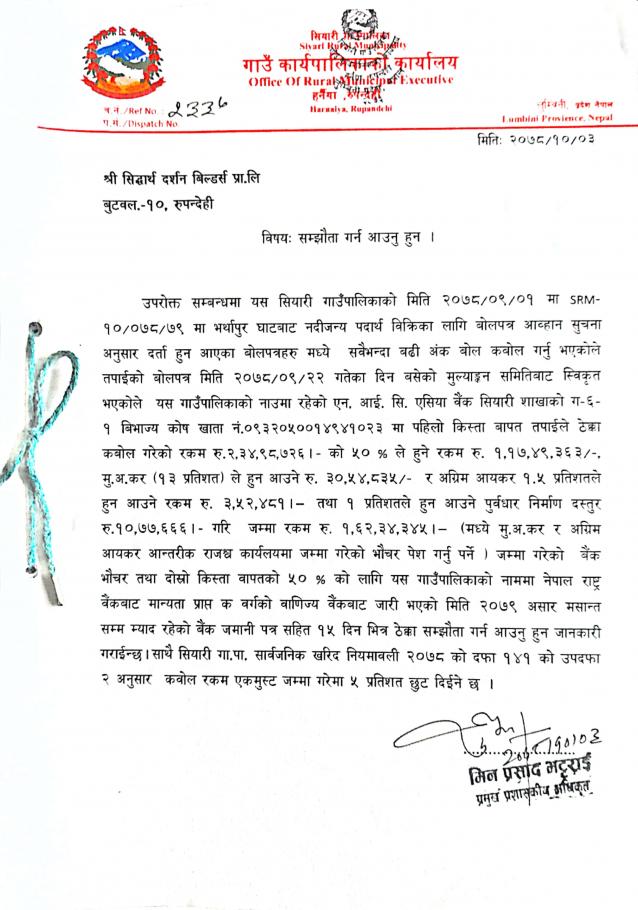 सियारी गाउँपालिका
Siyari Rural Municipality
गाउँ कार्यपालिकाको कार्यालय
Office Of Rural Municipal Executive
हर्नैया ,रुपन्देही
Harnaiya, Rupandehi
च.नं./Ref No.: 2336
प.सं./Dispatch No.
लुम्बिनी, प्रदेश नेपाल
Lumbini Provience, Nepal
मितिः २०७८/१०/०३
श्री सिद्धार्थ दर्शन बिल्डर्स प्रा.लि
बुटवल.-१०, रुपन्देही
विषयः सम्झौता गर्न आउनु हुन ।
उपरोक्त सम्बन्धमा यस सियारी गाउँपालिकाको मिति २०७८/०९/०१ मा SRM-
१०/०७८/७९ मा भर्थापुर घाटबाट नदीजन्य पदार्थ विक्रिका लागि बोलपत्र आव्हान सुचना
अनुसार दर्ता हुन आएका बोलपत्रहरु मध्ये सवैभन्दा बढी अंक बोल कवोल गर्नु भएकोले
तपाईको बोलपत्र मिति २०७८/०९/२२ गतेका दिन बसेको मुल्याङ्कन समितिबाट स्विकृत
भएकोले यस गाउँपालिकाको नाउमा रहेको एन. आई. सि. एसिया बैंक सियारी शाखाको ग-६-
१ बिभाज्य कोष खाता नं.०९३२०५००१४९४१०२३ मा पहिलो किस्ता बापत तपाईले ठेक्का
कबोल गरेको रकम रु.२,३४,९८,७२६।- को ५० % ले हुने रकम रु. १,१७,४९,३६३/-,
मु.अ.कर (१३ प्रतिशत) ले हुन आउने रु. ३०,५४,८३५/- र अग्रिम आयकर १.५ प्रतिशतले
हुन आउने रकम रु. ३,५२,४८१।– तथा १ प्रतिशतले हुन आउने पुर्वधार निर्माण दस्तुर
रु.१०,७७,६६६।- गरि जम्मा रकम रु. १,६२,३४,३४५।– (मध्ये मु.अ.कर र अग्रिम
आयकर आन्तरीक राजश्व कार्यलयमा जम्मा गरेको भौचर पेश गर्नु पर्ने ) जम्मा गरेको बैंक
भौचर तथा दोस्रो किस्ता वापतको ५० % को लागि यस गाउँपालिकाको नाममा नेपाल राष्ट्र
बैंकबाट मान्यता प्राप्त क वर्गको वाणिज्य बैंकबाट जारी भएको मिति २०७९ असार मसान्त
सम्म म्याद रहेको बैंक जमानी पत्र सहित १५ दिन भित्र ठेक्का सम्झौता गर्न आउनु हुन जानकारी
गराईन्छ।साथै सियारी गा.पा. सार्वजनिक खरिद नियमावली २०७८ को दफा १४१ को उपदफा
२ अनुसार कवोल रकम एकमुस्ट जम्मा गरेमा ५ प्रतिशत छुट दिईने छ ।
२०७८।१०।०३
मिन प्रसाद भट्टराई
प्रमुख प्रशासकीय अधिकृत